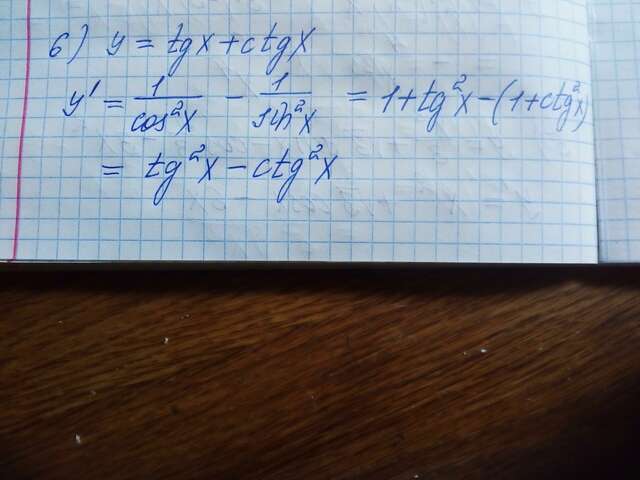 б) y = tgx + ctgx
y' = 1/cos²x - 1/sin²x = 1 + tg²x - (1 + ctg²x)
= tg²x - ctg²x